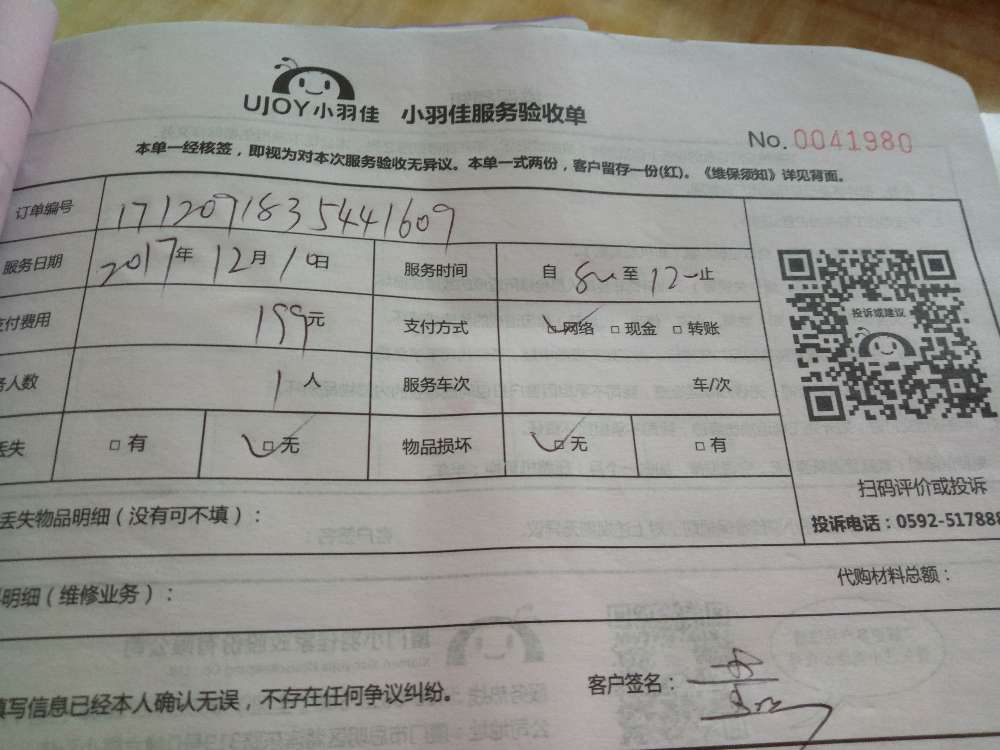 UJOY小羽佳 小羽佳服务验收单
No.0041980
本单一经核签，即视为对本次服务验收无异议。本单一式两份，客户留存一份(红)。《维保须知》详见背面。
订单编号 1712091835441609
服务日期 2017年12月10日 服务时间 自8至12止
支付费用 199元 支付方式 网络 现金 转账
人数 1人 服务车次 车/次
丢失 有 无 物品损坏 无 有
投诉或建议
扫码评价或投诉
投诉电话：0592-517888
丢失物品明细（没有可不填）：
代购材料总额：
明细（维修业务）：
填写信息已经本人确认无误，不存在任何争议纠纷。
客户签名：